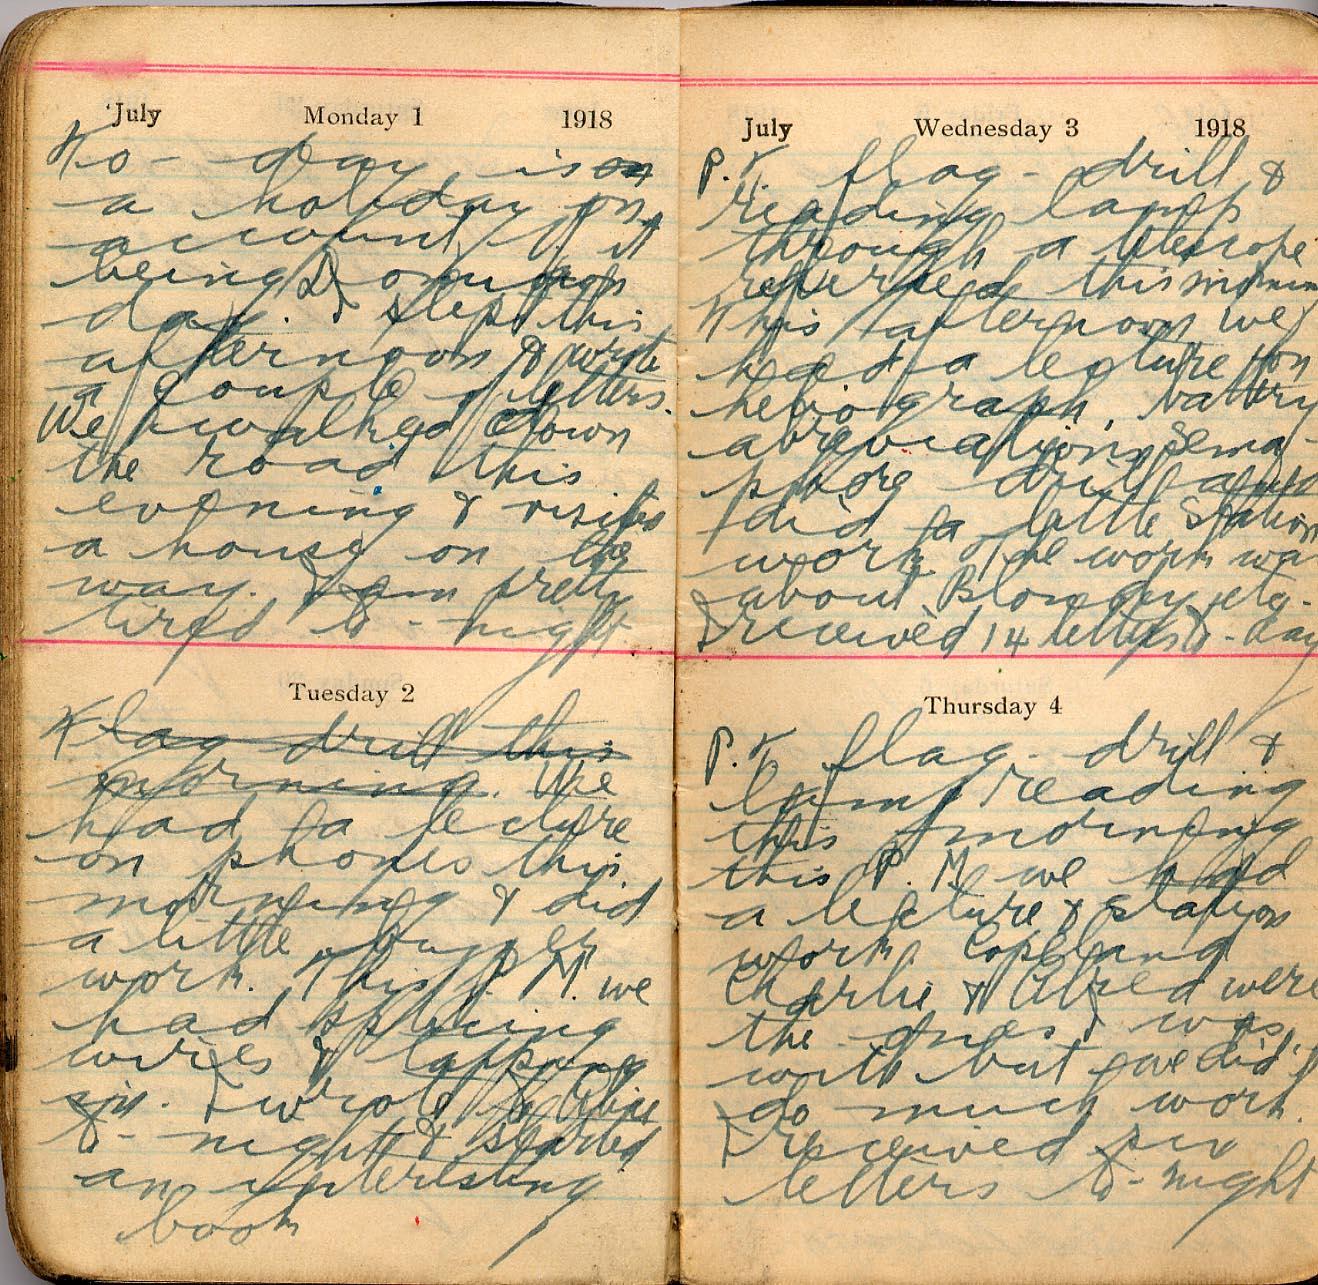 July Monday 1 1918
To-day is
a holiday on
account of it
being Dominion
day. I slept this
afternoon & wrote
a couple of letters.
We walked down
the road this
evening & visited
a house on the
way. I am pretty
tired to-night
Tuesday 2
Flag drill this
morning. We
had a lecture
on phones this
morning & did
a little buzzer
work. This P.M. we
had splicing
wires & tapping
in. I wrote to
to-night & started
an interesting
book
July Wednesday 3 1918
P.T. flag-drill &
reading lamp
through a telescope
reversed this morning
This afternoon we
had a lecture on
heliograph, battery
abreviations, Sema-
phore drill and
did a little Station
work. The work was
about etc.
I received 14 letters to-day
Thursday 4
P.T. flag-drill &
lamp reading
this morning
this P.M. we had
a lecture & station
work. Copeland
Charlie & Alred were
the ones I was
with but we did't
do much work.
I received six
letters to-night